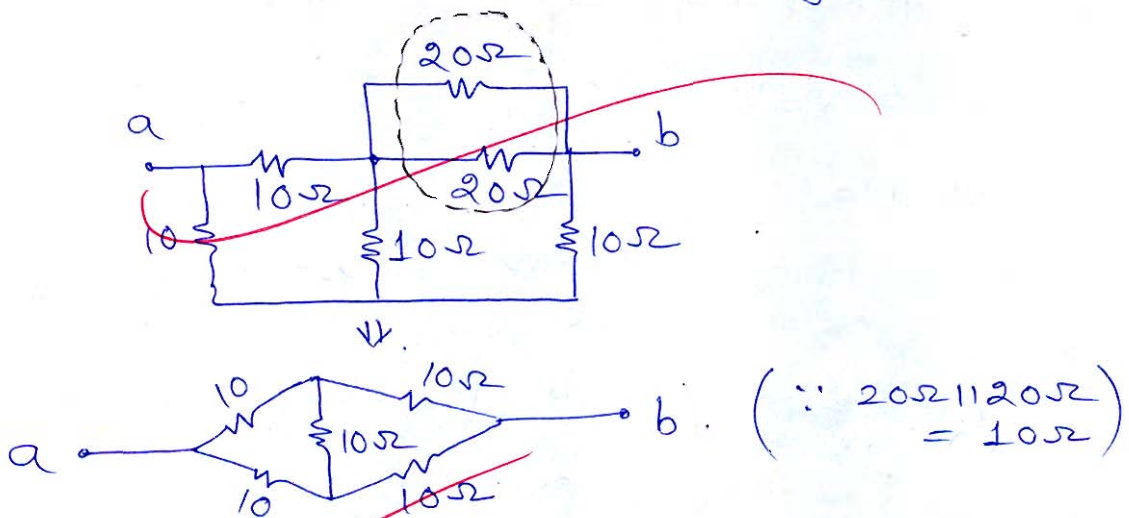 20Ω
a
b
10Ω
20Ω
10
10Ω
10Ω
10
10Ω
a
10Ω
b.
10
10Ω
(∵ 20Ω||20Ω
= 10Ω)